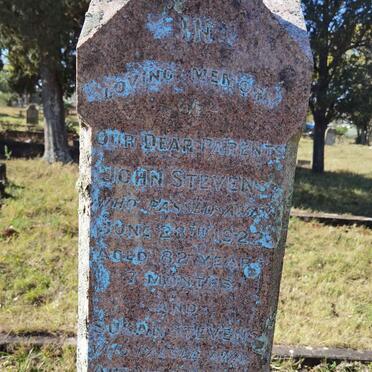 IN
LOVING MEMORY
OF
OUR DEAR PARENTS
JOHN STEVENS
WHO PASSED AWAY
JUNE 24TH 1922
AGED 82 YEARS
3 MONTHS
AND
STEVENS